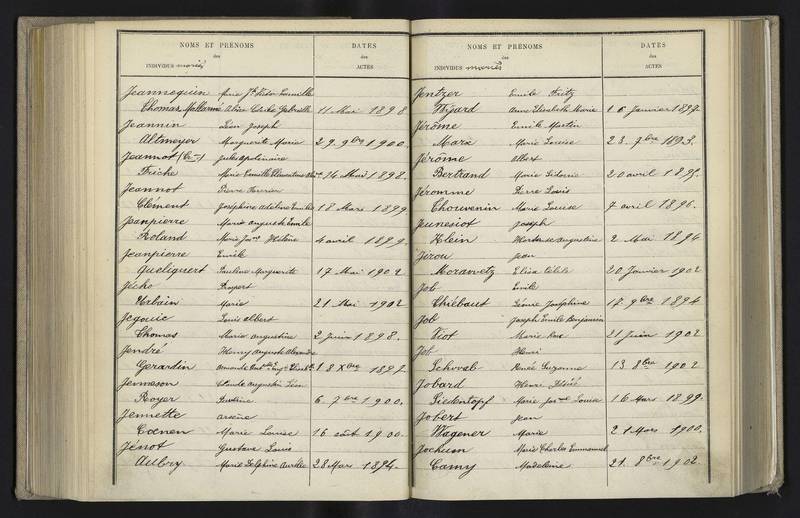 NOMS ET PRÉNOMS DATES
des des
INDIVIDUS mariés ACTES
Jeannequin Marie Jh Victor Camille
Thomas Mallarmé Alice Cécile Gabrielle 11 Mai 1898
Jeannin Léon Joseph
Altmeyer Marguerite Marie 29 9bre 1900.
Jeannot Jules Apolinaire
Friche Marie Camille Clémentine 14 Mai 1898.
Jeannot Pierre
Clément Joséphine Adeline Emilie 18 Mars 1899
Jeanpierre Marie Auguste Emile
Roland Marie Jne Hélène 4 avril 1899.
Jeanpierre Emile
Queliquert Pauline Marguerite 17 Mai 1902
Jecko Rupert
Urbain Marie 21 Mai 1902
Jegouic Louis Albert
Thomas Maria Augustine 2 Juin 1898.
Jendré Henry Auguste Alexandre
Gerardin Amande 18 Xbre 1897
Jenneson Claude Augustin Léon
Royer Justine 6 7bre 1900.
Jennette Arsène
Coenen Marie Louise 16 août 1900.
Jénot Gustave Louis
Aubry Marie Delphine Aurélie 28 Mars 1894.
NOMS ET PRÉNOMS DATES
des des
INDIVIDUS mariés ACTES
Jentzer Emile Fritz
Thijard Anne Elisabeth Marie 16 Janvier 1897.
Jérôme Emile Martin
Marx Marie Louise 23. 7bre 1893.
Jérôme Albert
Bertrand Marie Sidonie 20 avril 1895.
Jéromme Pierre Louis
Chouvenin Marie Louise 7 avril 1896.
Jeunesiot Joseph
Klein Hortense Augustine 2 Mai 1894
Jirou Jean
Morawetz Elisa 20 Janvier 1902
Job Emile
Thiébaut Léonie Joséphine 17 9bre 1894
Job Joseph Emile Benjamin
Tiot Marie Rose 21 Juin 1902
Job Henri
Schwob Renée Suzanne 13 8bre 1902
Jobard Henri Désiré
Siedentopf Marie Jne Louise 16 Mars 1899.
Jobert Jean
Wagener Marie 21 Mars 1900.
Jochum Marie Charles Emmanuel
Camy Madeleine 21 8bre 1902.